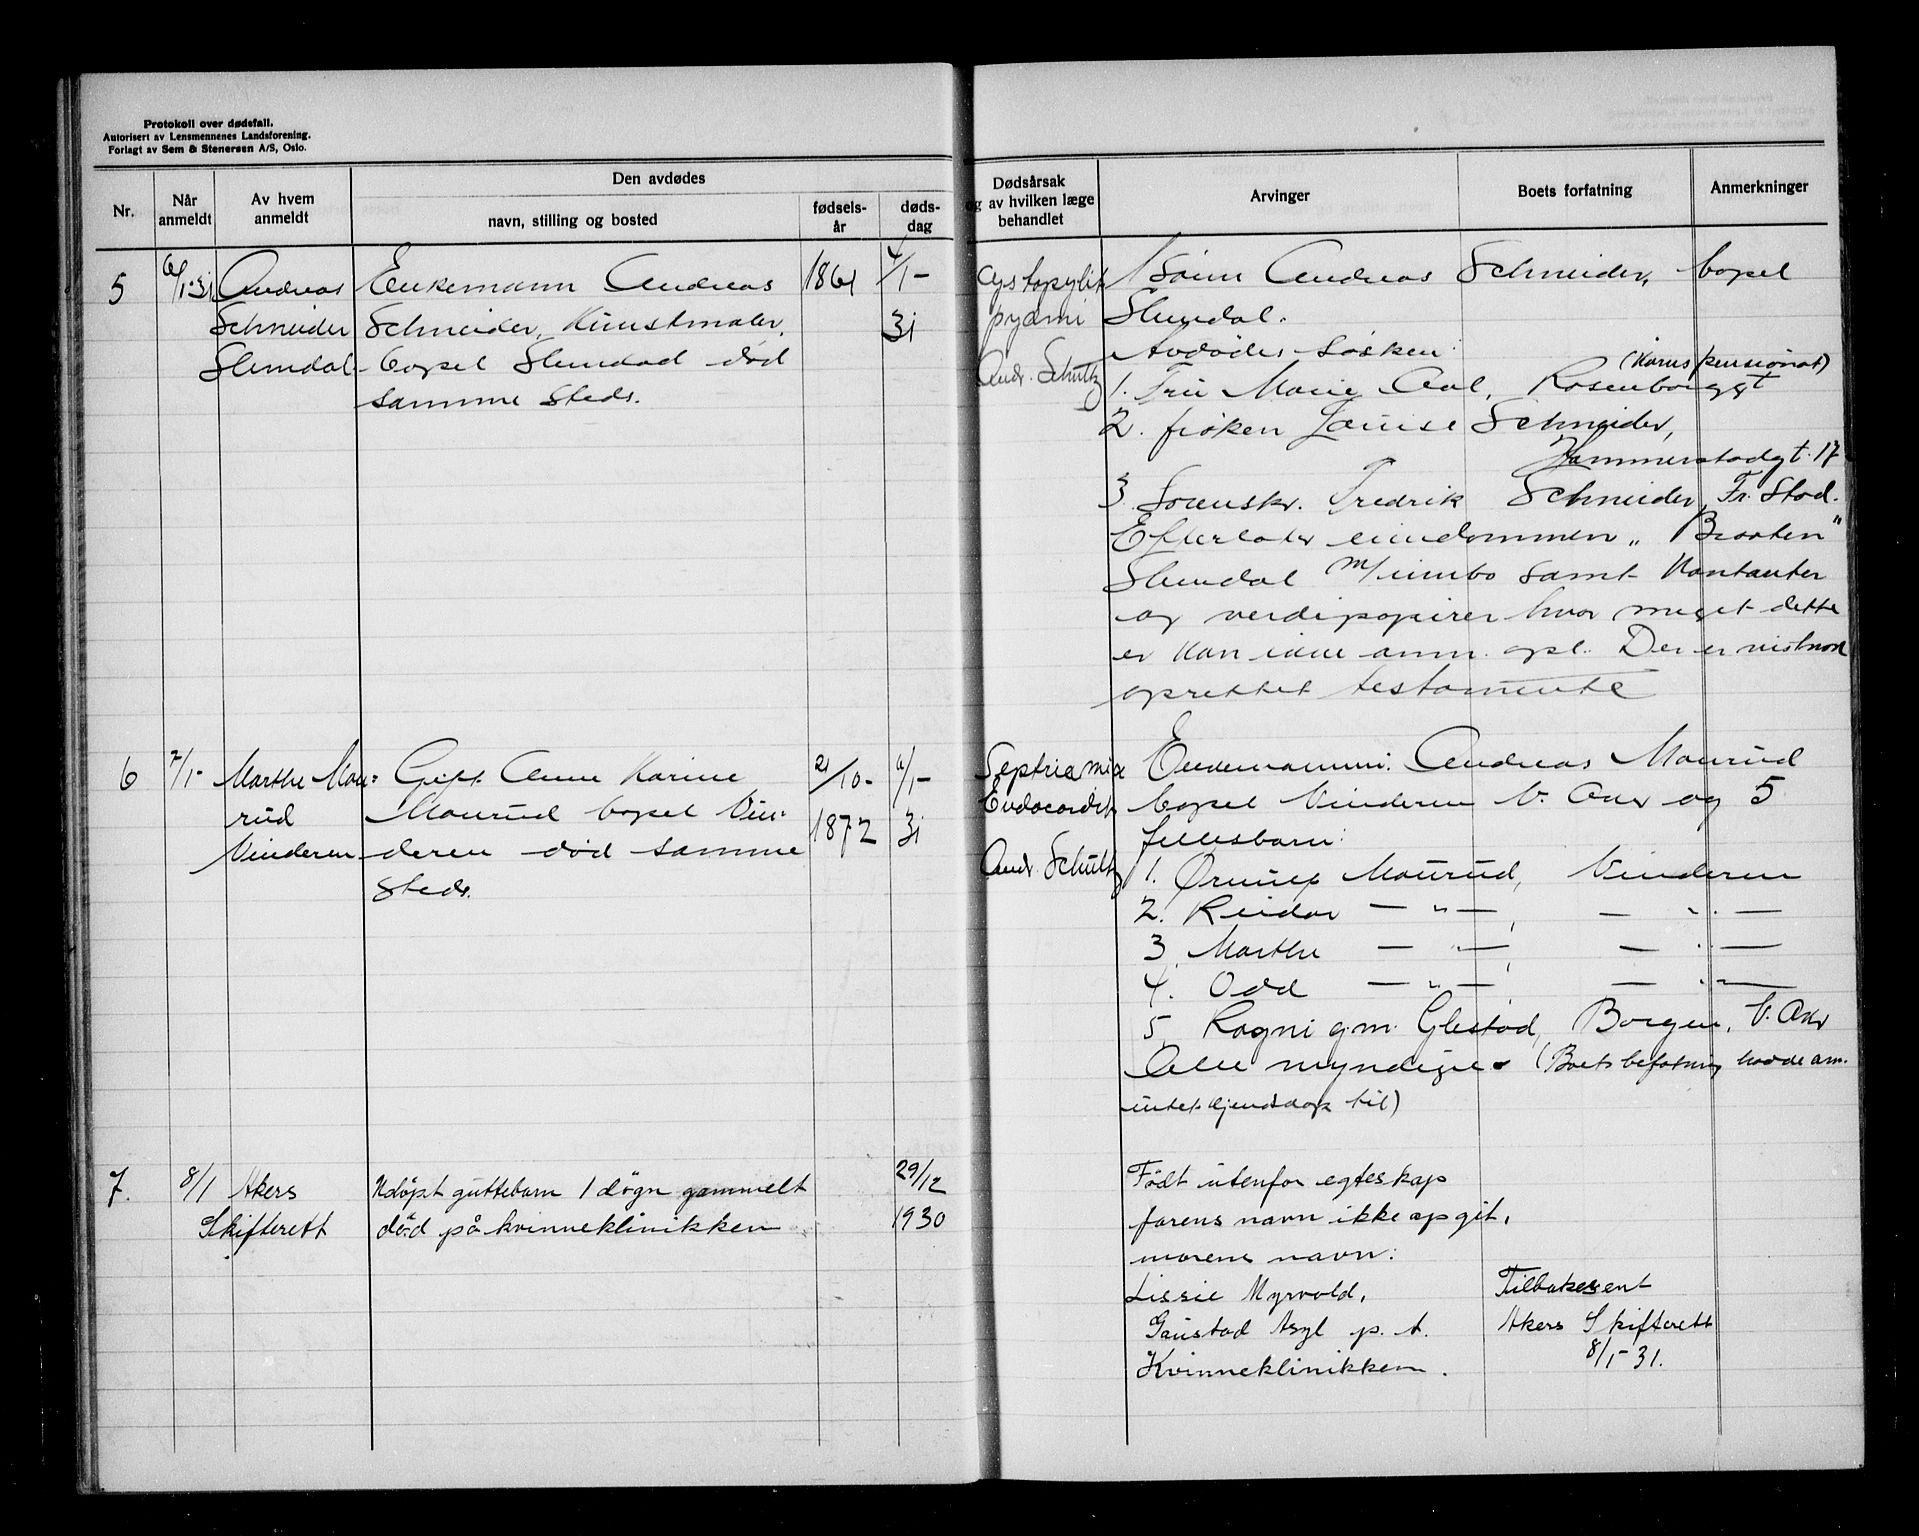 Protokoll over dødsfall.
Autorisert av Lensmennenes Landsforening.
Forlagt av Sem & Stenersen A/S, Oslo.
Nr.
Når anmeldt
Av hvem anmeldt
Den avdødes
navn, stilling og bosted
fødsels-år
døds-dag
Dødsårsak
og av hvilken læge
behandlet
Arvinger
Boets forfatning
Anmerkninger
5
6/1-31
Andreas
Schneider
Slemdal.
Enkemann Andreas
Schneider, Kunstmaler,
bopel Slemdal død
samme steds.
1861
4/1-
31
Cystopylit
pyæmi
Andr. Schultz
Sønn Andreas Schneider, bopel
Slemdal.
Avdødes søsken:
1. Fru Marie Aal, Rosenborggt
2. frøken Louise Schneider,
Hammerstadgt. 17
3. Fredrik Schneider, Fr. Stad.
Efterlater eiendommen „Braaten"
Slemdal m/innbo samt kontanter
og verdipapirer hvor meget dette
er kan ikke anm. opl. Der er vistnok
oprettet testamente
6
7/1-
Marthe Mou=
rud
Vinderen
Gift Anne Karine
Mourud bopel Vin=
deren død samme
steds.
21/10-
1872
6/1-
31
Endocardit
Andr. Schultz
Enkemann: Andreas Mourud
bopel Vinderen V. Aker og 5
fellesbarn:
1. Mourud, Vinderen
2. Reidar — „ —, — „ —
3. Marthe — „ —, — „ —
4. Odd — „ —, — „ —
5. Ragni g.m. Glestad, Borgen, V. Aker
Alle myndige. (Boets befatning hadde anm.
intet kjendskap til)
7.
8/1
Akers
Skifterett
Udøpt guttebarn 1 døgn gammelt
død på kvinneklinikken
29/12
1930
Født utenfor egteskap
farens navn ikke opgit,
morens navn:
Lissie Myrvold,
Gaustad Asyl p. t.
Kvinneklinikken.
Tilbakesent
Akers Skifterett
8/1-31.